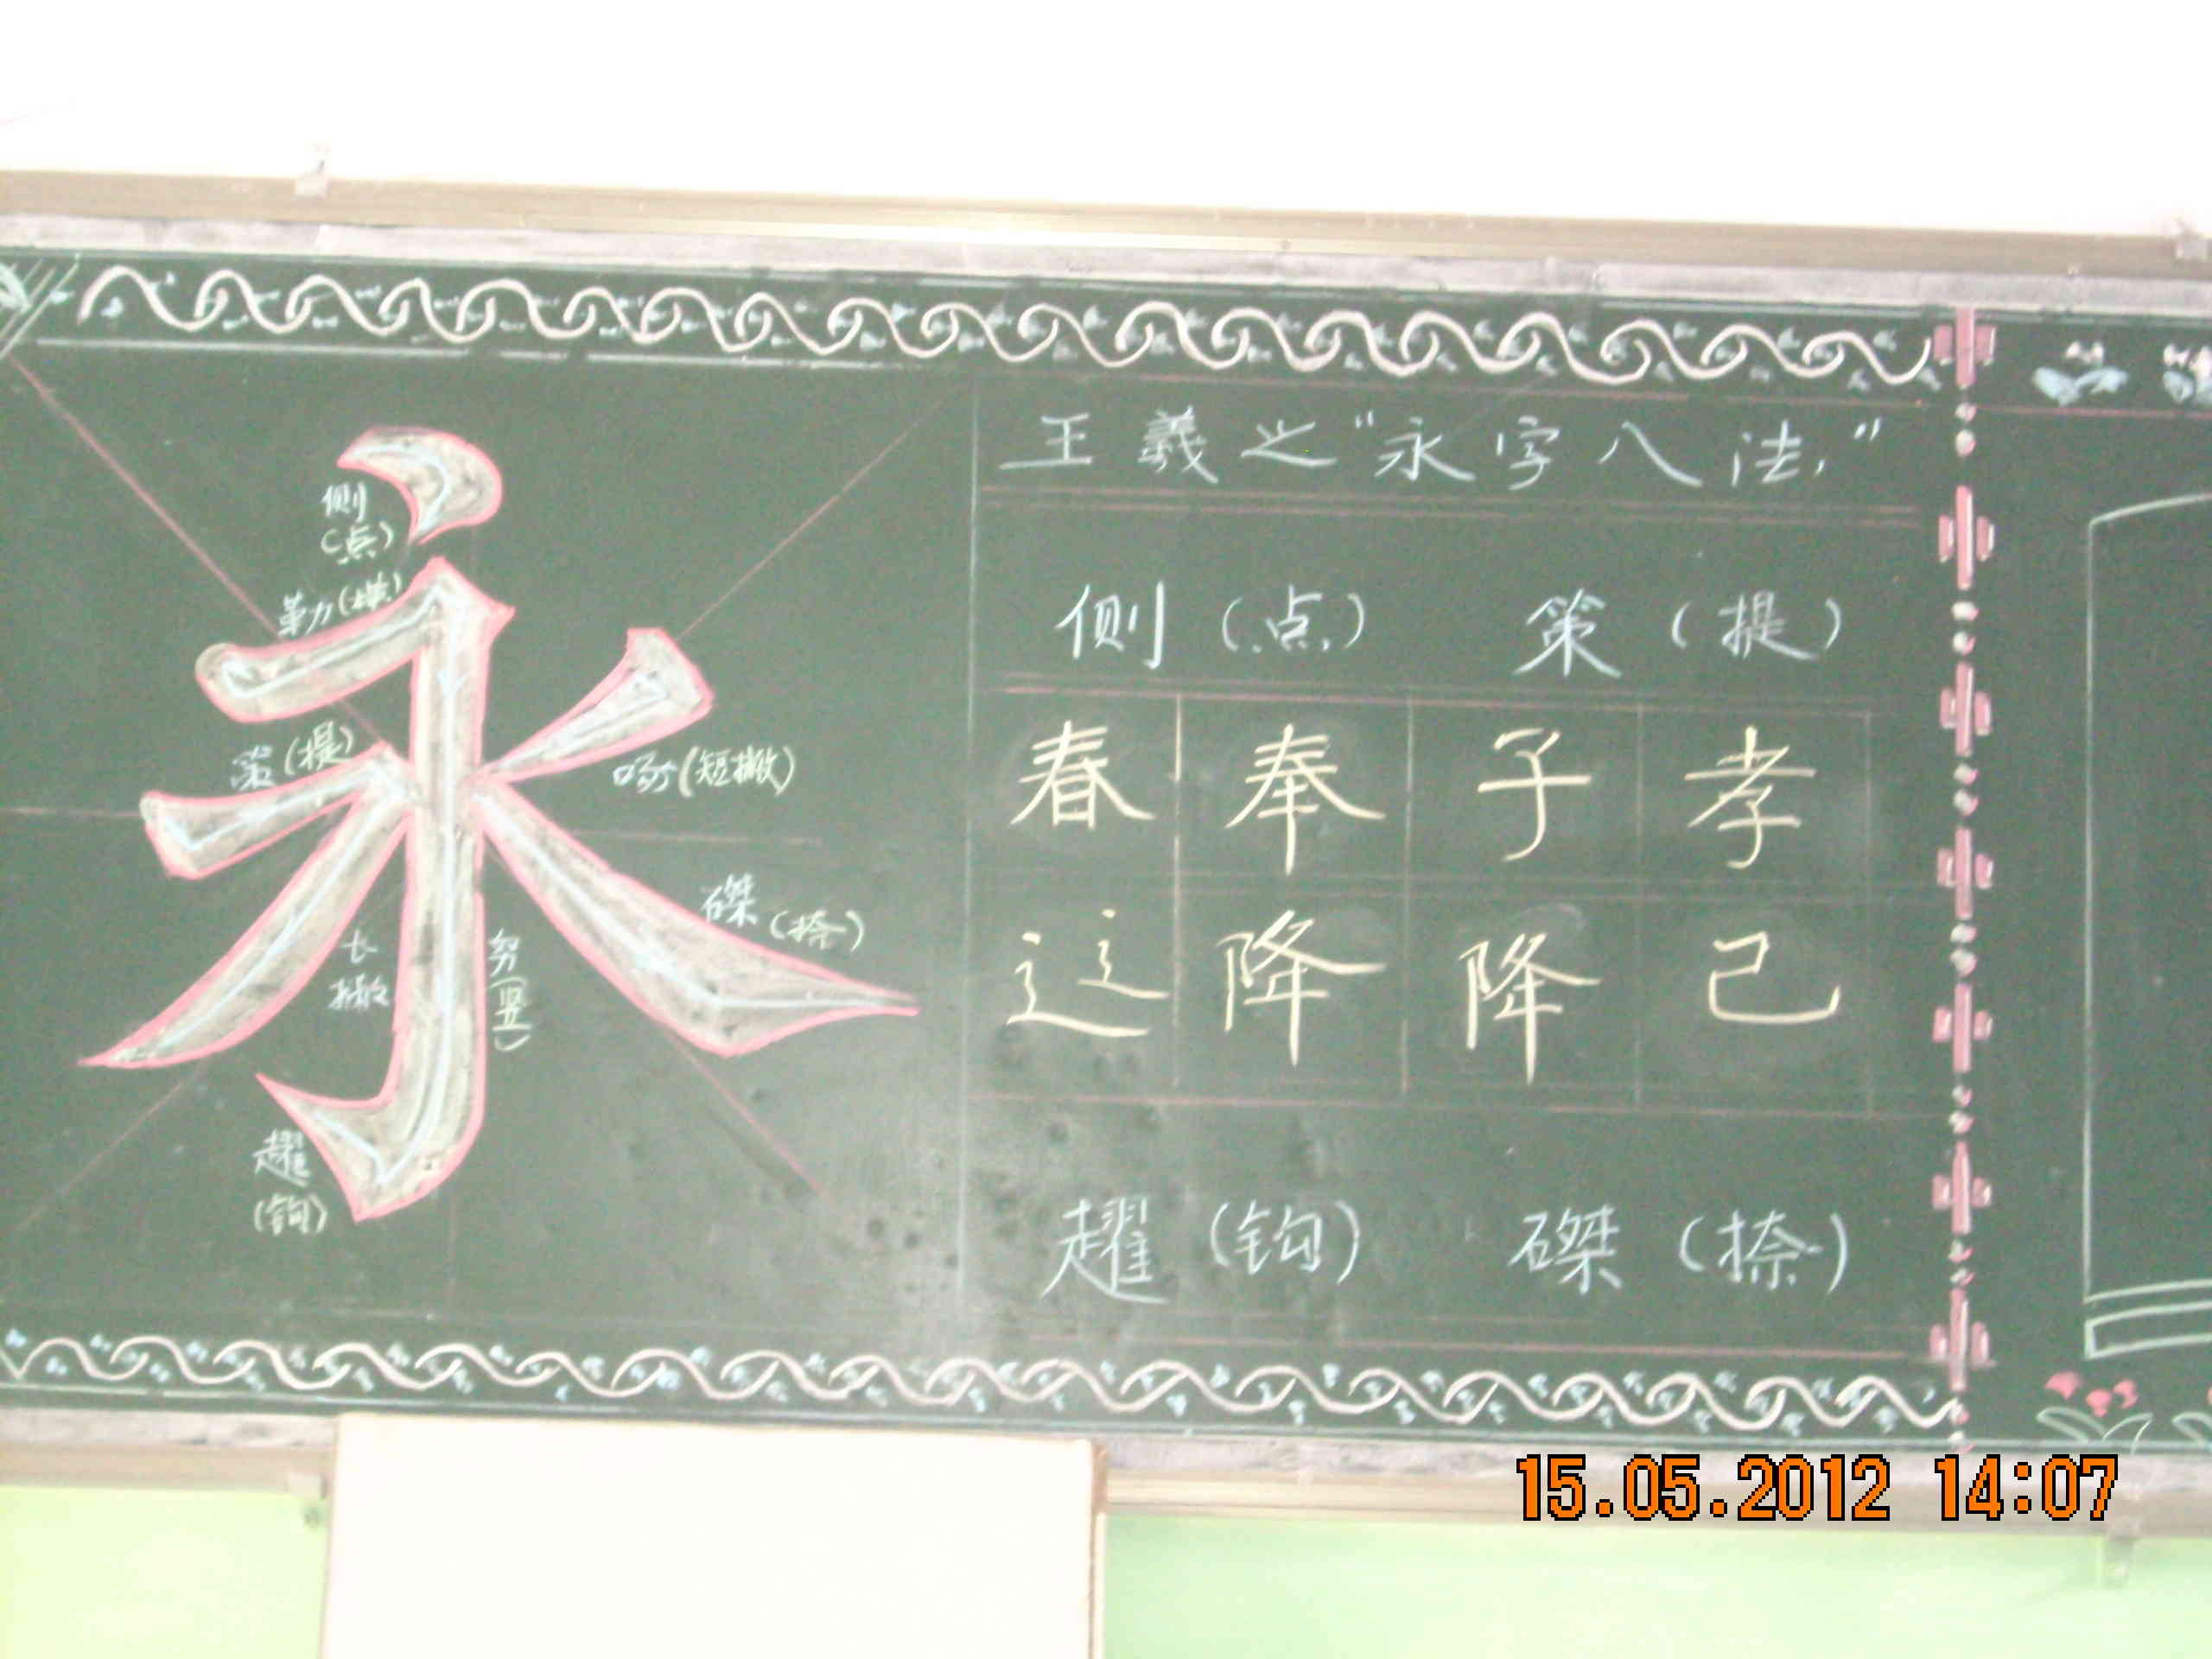 永
侧
(点)
勒(横)
策(提)
啄(短撇)
磔(捺)
长
撇
努(竖)
趯
(钩)
王羲之“永字八法”
侧(点) 策(提)
春 奉 子 孝
降 降 己
趯(钩) 磔(捺)
15.05.2012 14:07